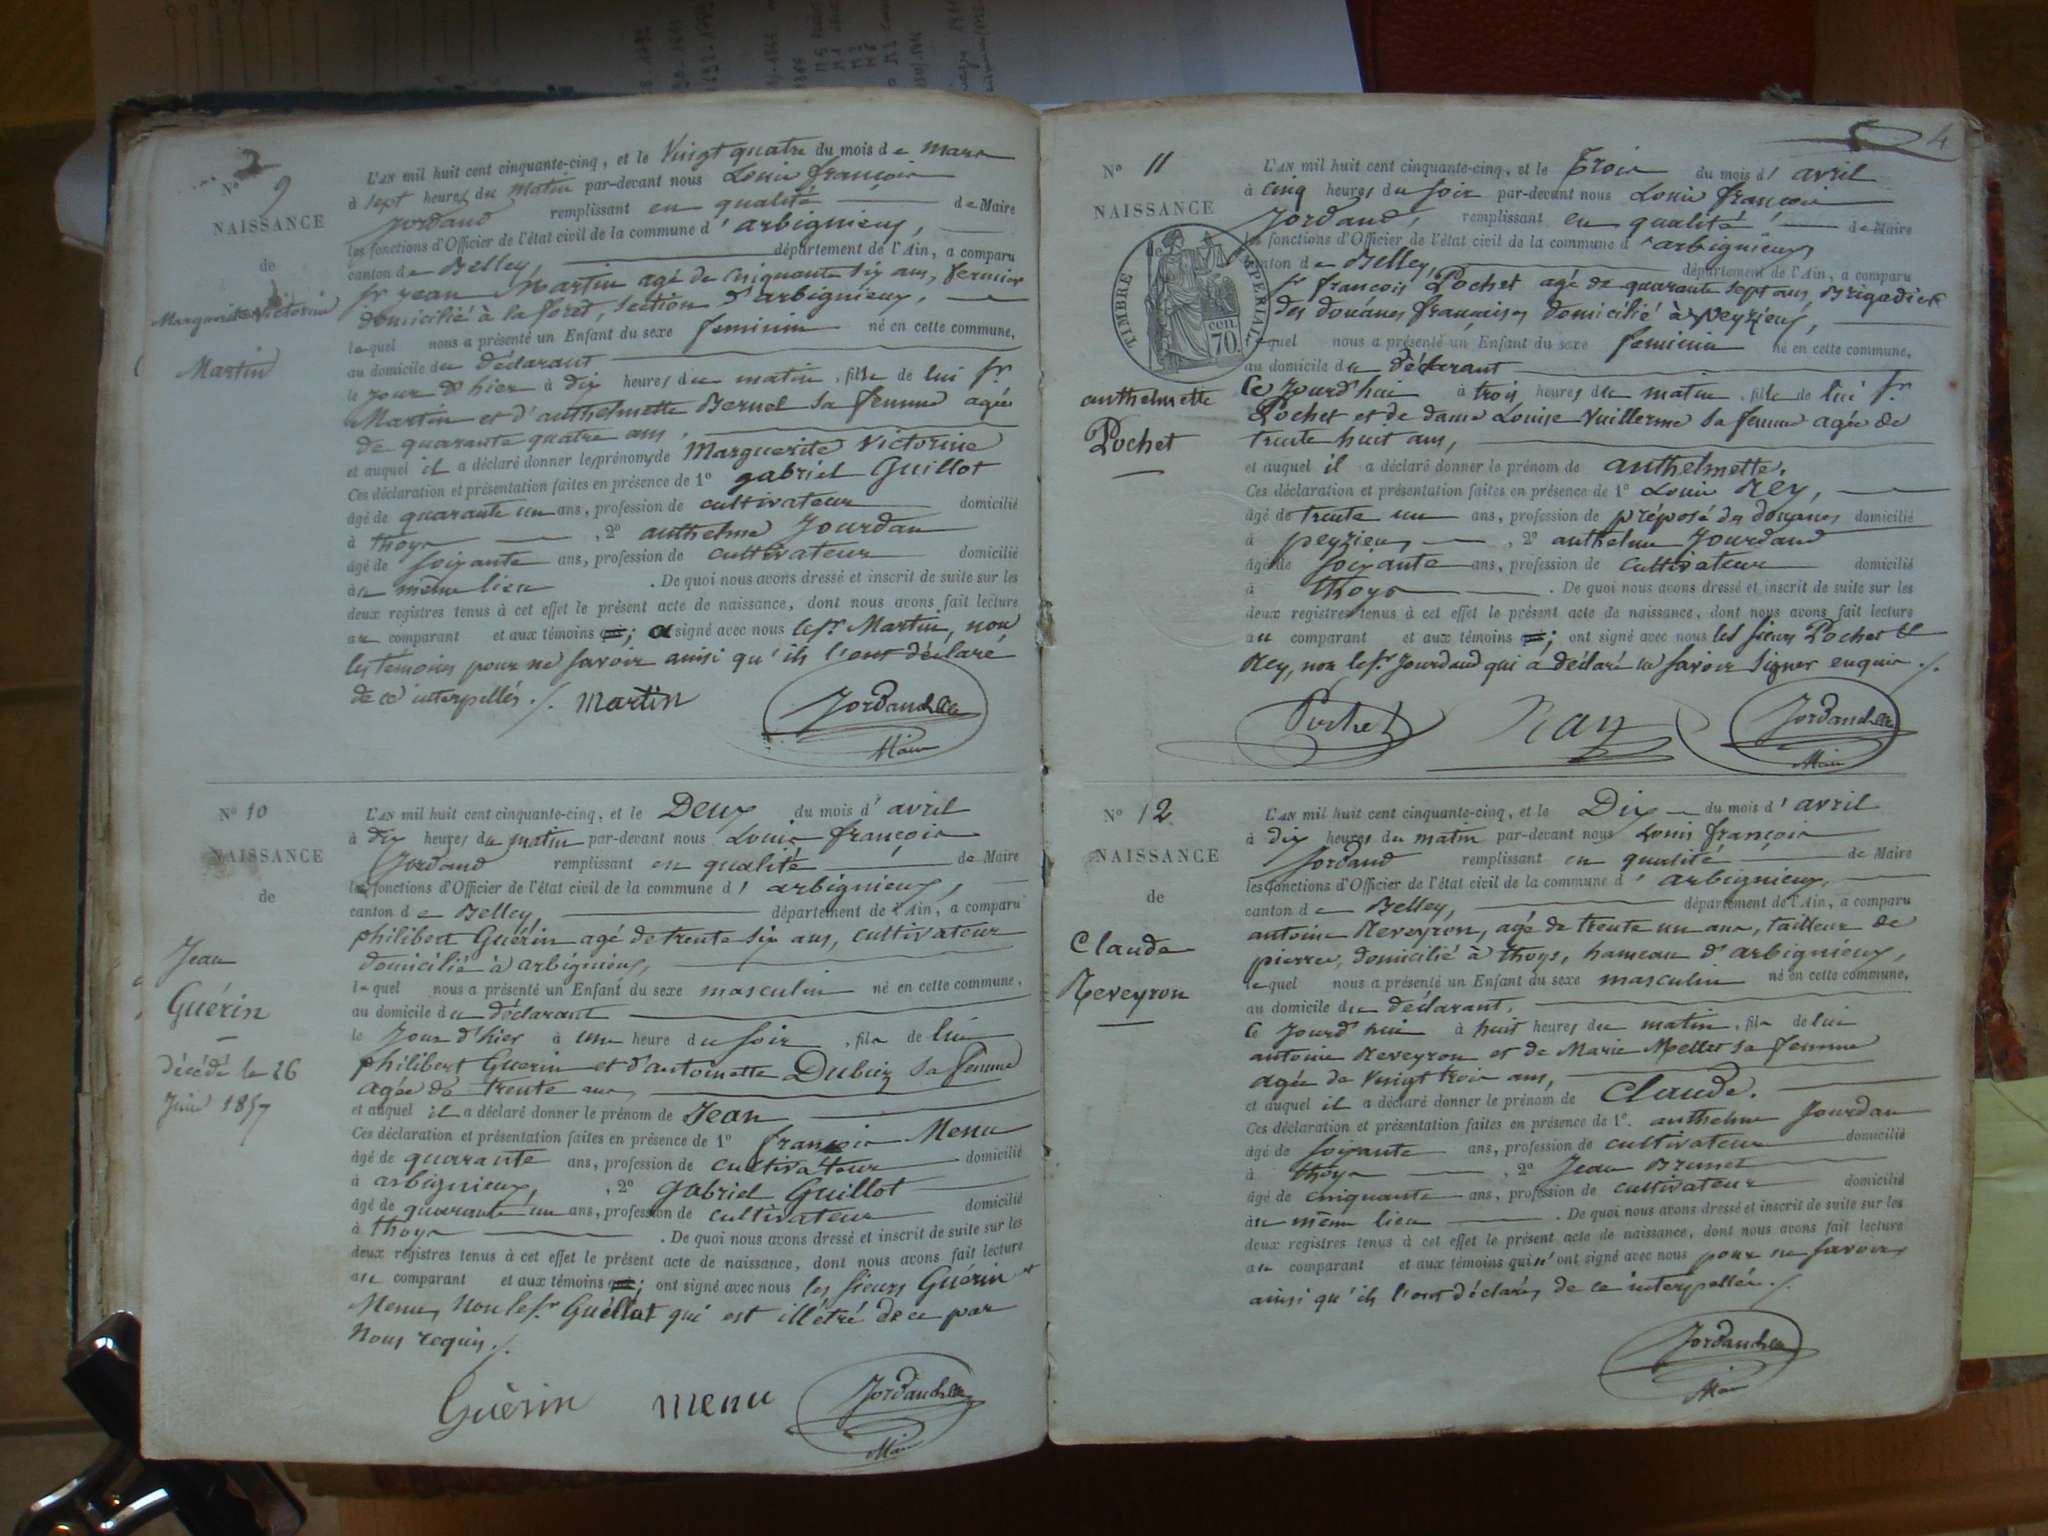 2
N° 9
NAISSANCE
de
Marguerite Victorine
Martin
L'AN mil huit cent cinquante-cinq, et le Vingt quatre du mois de mars
à sept heures du matin par-devant nous Louis françois
Jordand remplissant en qualité de Maire
les fonctions d'Officier de l'état civil de la commune d'arbignieux,
canton de Belley, département de l'Ain, a comparu
Sr jean Martin agé de Cinquante Six ans, fermier
domicilié à la foret, section d'arbignieux,
lequel nous a présenté un Enfant du sexe feminin né en cette commune,
au domicile du déclarant
le jour d'hier à dix heures du matin, fille de lui Sr
Martin et d'anthelmette Bernel sa femme agée
de quarante quatre ans,
et auquel il a déclaré donner les prénoms de Marguerite Victorine
Ces déclaration et présentation faites en présence de 1° gabriel Guillot
âgé de quarante un ans, profession de cultivateur domicilié
à thoys, 2° anthelme Jourdan
âgé de soixante ans, profession de cultivateur domicilié
au même lieu. De quoi nous avons dressé et inscrit de suite sur les
deux registres tenus à cet effet le présent acte de naissance, dont nous avons fait lecture
au comparant et aux témoins qui; a signé avec nous le sr Martin, non
les témoins pour ne savoir ainsi qu'ils l'ont déclaré
de ce interpellés ./. Martin Jordand
Maire
N° 10
NAISSANCE
de
Jean
Guérin
décédé le 26
Juin 1857
L'AN mil huit cent cinquante-cinq, et le Deux du mois d'avril
à dix heures du matin par-devant nous Louis françois
Jordand remplissant en qualité de Maire
les fonctions d'Officier de l'état civil de la commune d'arbignieux,
canton de Belley, département de l'Ain, a comparu
philibert Guérin agé de trente six ans, cultivateur
domicilié à arbignieux,
lequel nous a présenté un Enfant du sexe masculin né en cette commune,
au domicile du déclarant
le Jour d'hier à une heure du soir, fils de lui
philibert Guérin et d'antoinette Dubiez sa femme
agée de trente ans,
et auquel il a déclaré donner le prénom de Jean
Ces déclaration et présentation faites en présence de 1° françois Menu
âgé de quarante ans, profession de cultivateur domicilié
à arbignieux, 2° gabriel Guillot
âgé de quarante un ans, profession de cultivateur domicilié
à thoys. De quoi nous avons dressé et inscrit de suite sur les
deux registres tenus à cet effet le présent acte de naissance, dont nous avons fait lecture
au comparant et aux témoins qui; ont signé avec nous les sieurs Guérin et
Menu, Non le sr Guillot qui est illétré de ce par
Nous requis ./.
Guèrin menu Jordand
Maire
4
N° 11
NAISSANCE
de
TIMBRE IMPERIAL
70 CEN.
anthelmette
Pochet
L'AN mil huit cent cinquante-cinq, et le Trois du mois d'avril
à cinq heures du soir par-devant nous Louis françois
Jordand, remplissant en qualité de Maire
les fonctions d'Officier de l'état civil de la commune d'arbignieux,
canton de Belley, département de l'Ain, a comparu
Sr françois Pochet agé de quarante sept ans, Brigadier
des douanes françaises domicilié à Peyzieux,
lequel nous a présenté un Enfant du sexe feminin né en cette commune,
au domicile du déclarant
Ce Jourd'hui à trois heures du matin, fille de lui Sr
Pochet et de dame Louise Vuillerme sa femme agée de
trente huit ans,
et auquel il a déclaré donner le prénom de anthelmette.
Ces déclaration et présentation faites en présence de 1° Louis Rey,
âgé de trente un ans, profession de préposé des douanes domicilié
à peyzieux, 2° anthelme Jourdand
âgé de soixante ans, profession de cultivateur domicilié
à thoys. De quoi nous avons dressé et inscrit de suite sur les
deux registres tenus à cet effet le présent acte de naissance, dont nous avons fait lecture
au comparant et aux témoins qui; ont signé avec nous les sieurs Pochet et
Rey, non le sr Jourdand qui a déclaré ne savoir signer enquis ./.
Pochet Ray Jordand
Maire
N° 12
NAISSANCE
de
Claude
Reveyron
L'AN mil huit cent cinquante-cinq, et le Dix du mois d'avril
à dix heures du matin par-devant nous Louis françois
Jordand remplissant en qualité de Maire
les fonctions d'Officier de l'état civil de la commune d'arbignieux,
canton de Belley, département de l'Ain, a comparu
antoine Reveyron, agé de trente un ans, tailleur de
pierres, domicilié à thoys, hameau d'arbignieux,
lequel nous a présenté un Enfant du sexe masculin né en cette commune,
au domicile du déclarant,
Ce Jourd'hui à huit heures du matin, fils de lui
antoine Reveyron et de Marie Mellet sa femme
agée de Vingt trois ans,
et auquel il a déclaré donner le prénom de Claude.
Ces déclaration et présentation faites en présence de 1°. anthelme Jourdan
âgé de soixante ans, profession de cultivateur domicilié
à thoys, 2° Jean Brunet
âgé de cinquante ans, profession de cultivateur domicilié
au même lieu. De quoi nous avons dressé et inscrit de suite sur les
deux registres tenus à cet effet le présent acte de naissance, dont nous avons fait lecture
au comparant et aux témoins qui n'ont signé avec nous pour ne savoir
ainsi qu'ils l'ont déclarés de ce interpellés ./.
Jordand
Maire